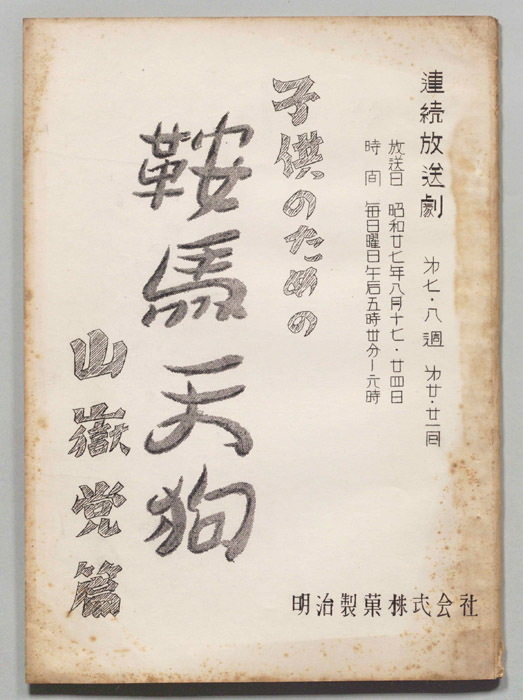 連続放送劇 㐧七・八週 㐧廿・廿一回
放送日 昭和廿七年八月十七・廿四日
時间 每日曜日午后五時卅分ー六時
子供のための
鞍馬天狗
山嶽党篇
明治製菓株式会社